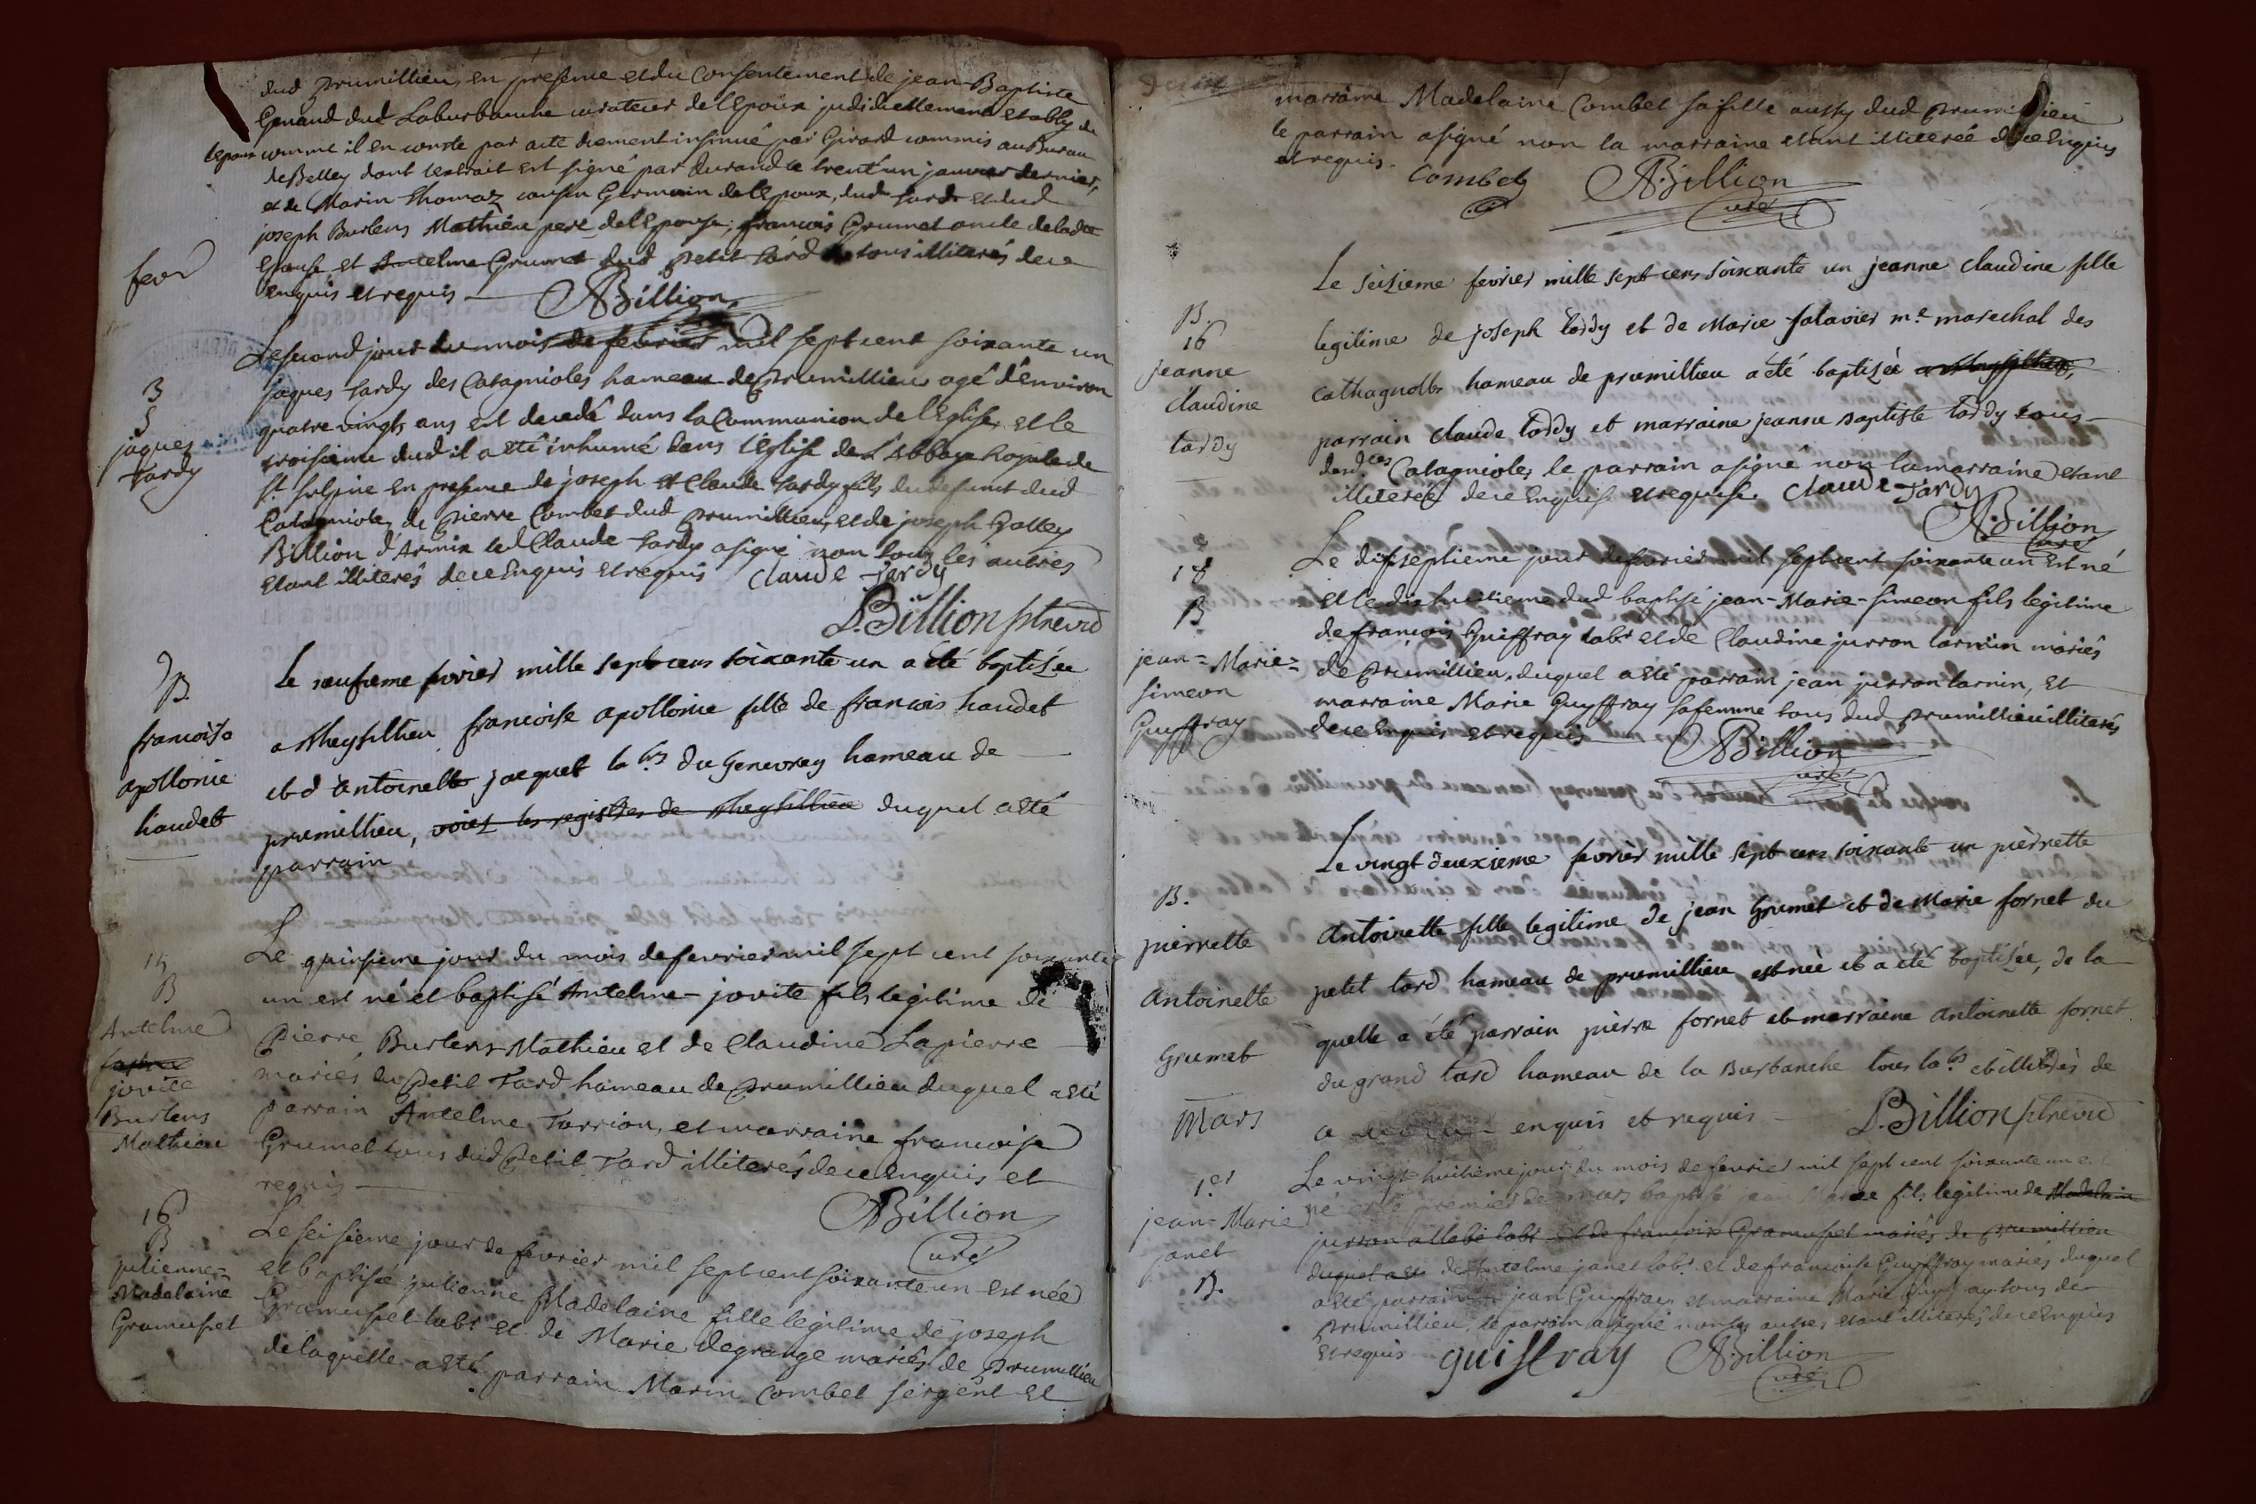 dud prumillieu, en presence et du Consentement de jean-Baptiste
Genaud dud Laburbanche curateur de l'Epoux judiciellement etably du
lepoux comme il en conste par acte duement insinué par Girard commis au Bureau
de Belley dont lextrait est signé par durand le trent'un janvier dernier,
et de Marin Thomaz cousin Germain de l'Epoux, dud tard et dud
joseph Burlens Mathieu pere de l'Epouse, françois Grumet oncle de ladte
Epouse et Antelme Grumet dud petit tard tous illiterés de ce
enquis et requis ABillion
fevr
3
S
jaques
tardy
Le second jour du mois de fevrier mil sept cent soixante un
jaques tardy des Catagnioles hameau de prumillieu agé d'environ
quatre vingts ans est decedé dans la Communion de l'Eglise, et le
troisieme dud il a esté inhumé dans l'Eglise de L'Abbaye Royale de
St sulpice en presence de joseph et Claude tardy fils du defunct dud
Catagnioles, de pierre Combet dud prumillieu, et de joseph Galley
Billion d'Armix led Claude tardy a signé non tous les autres
etant illiterés de ce Enquis et requis Claude tardy
D.Billion ptrevic
9
B.
francoise
apollonie
haudet
le neufieme fevrier mille sept cens soixante un a eté baptisée
a Rheysillieu francoise apollonie fille de francois haudet
et d'antoinette jacquet lab.rs du Genevray hameau de
prumillieu, voiez les registres de Rheysillieu duquel a eté
parrain
15
B
Antelme
jovite
Burlens
Mathieu
Le quinsieme jour du mois de fevrier mil sept cent soixante
un est né et baptisé Antelme-jovite fils legitime de
Pierre Burlens-Mathieu et de Claudine Lapierre
mariés du petit Tard hameau de prumillieu duquel a esté
parrain Antelme Tarrion, et marraine francoise
Grumet tous dud petit Tard illiterés de ce enquis et
requis
ABillion
curé
16
B
julienne-
Madelaine
Gramuset
Le seisieme jour de fevrier mil sept cent soixante un est née
et baptisée julienne Madelaine fille legitime de joseph
Gramuset labr et de Marie degrange mariés de prumillieu
de laquelle a esté parrain Marin Combet sergent et
marraine Madelaine Combet sa fille aussy dud prumillieu
le parrain a signé non la marraine etant illiterée de ce Enquis
et requis. Combet ABillion
curé
B.
16
jeanne
claudine
tardy
Le seizieme fevrier mille sept cens soixante un jeanne claudine fille
legitime de joseph tardy et de Marie falavier m.e marechal des
cathagnolles hameau de prumillieu a été baptisée a Rheysillieu,
parrain claude tardy et marraine jeanne Baptiste tardy tous
desd.ces Catagnioles, le parrain a signé non la marraine etant
illiterée de ce Enquise et requise. Claude tardy
ABillion
curé
18
B.
jean-Marie-
simeon
Guyffray
Le dixseptieme jour de fevrier mil sept cent soixante un est né
et le dix huitieme dud baptisé jean-Marie-simeon fils legitime
de françois Guiffray labr et de Claudine jurron larnin mariés
de prumillieu, duquel a esté parrain jean jurron larnin, et
marraine Marie Guyffray sa femme tous dud prumillieu illiterés
de ce Enquis et requis ABillion
curé
B.
pierrette
antoinette
Grumet
Le vingt deuxieme fevrier mille sept cens soixante un pierrette
antoinette fille legitime de jean Grumet et de Marie fornet du
petit tard hameau de prumillieu est née et a eté baptisée, de la
quelle a été parrain pierre fornet et marraine antoinette fornet
du grand tard hameau de la Burbanche tous la.bs et illiterés de
a enquis et requis D.Billion ptrevic
Mars
1.er
jean-Marie
janet
B.
Le vingt huitieme jour du mois de fevrier mil sept cent soixante un est
né et le premier de mars baptisé jean Marie fils legitime de Madelain
jurron allabé labr et de francoise Gramuset mariés de prumillieu
duquel a esté d'Antelme janet labr et de francoise Guyffray mariés duquel
a esté parrain jean Guyffray et marraine Marie Guyffray tous de
prumillieu, le parrain a signé non les autres etant illiterés de ce Enquis
et requis guiffray ABillion
curé